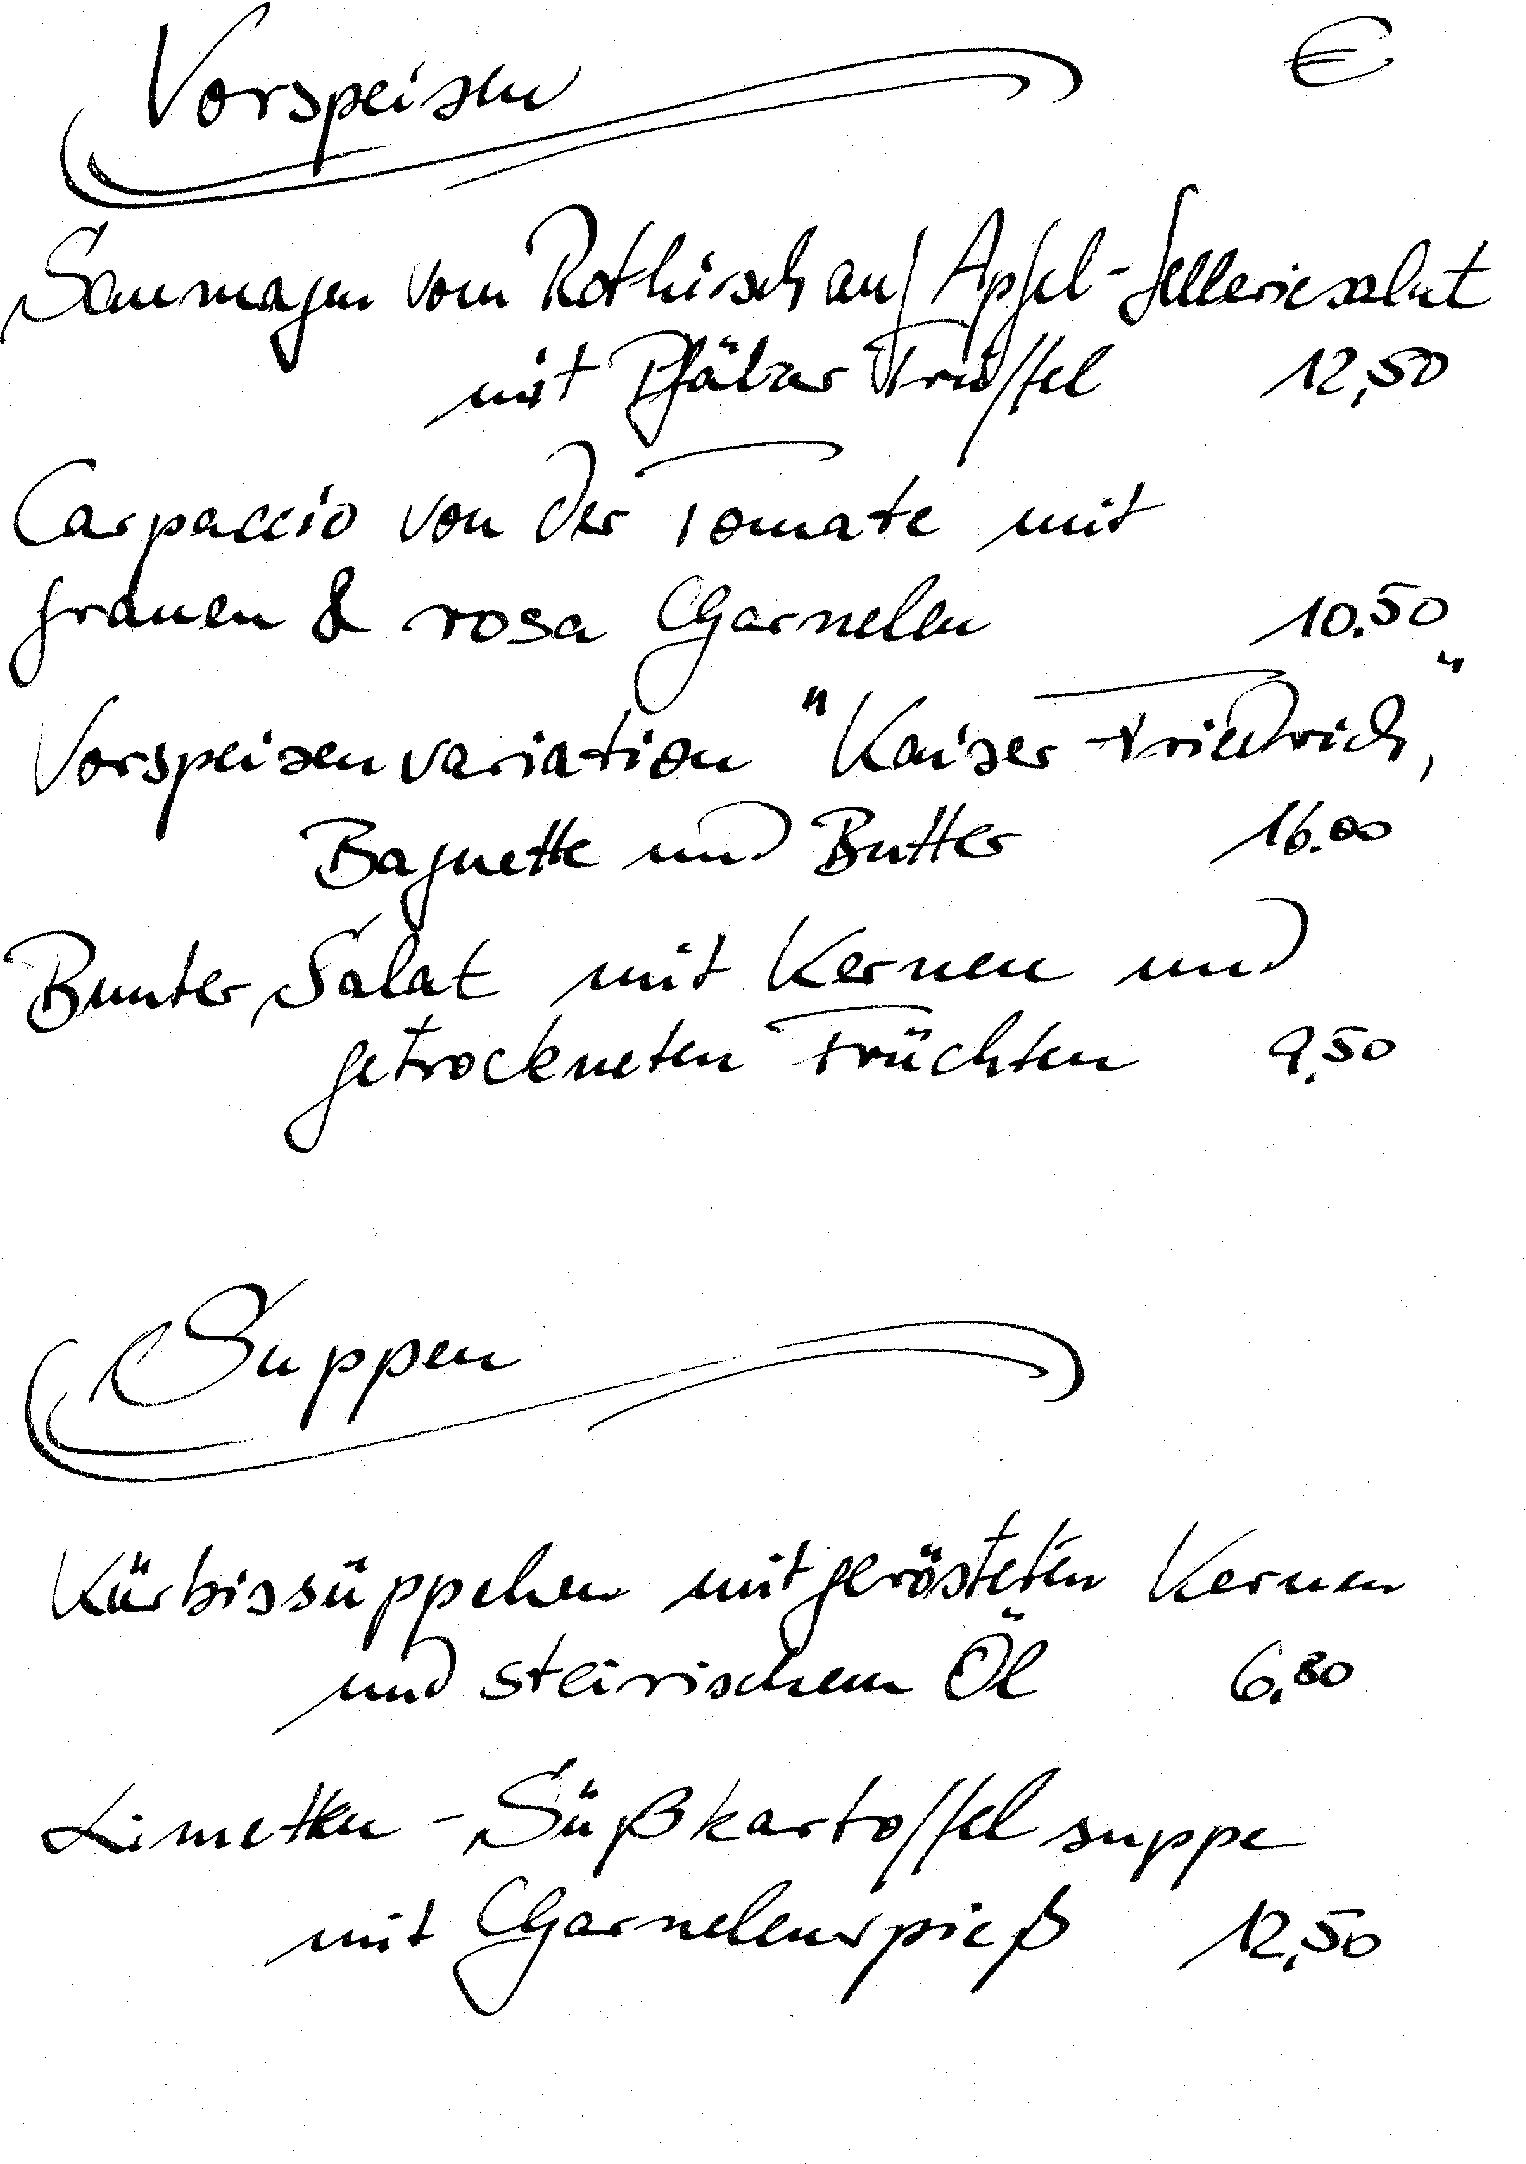 Vorspeisen €
Saumagen vom Rothirsch auf Apfel-Selleriesalat
mit Pfälzer Trüffel 12,50
Carpaccio von der Tomate mit
grauen & rosa Garnelen 10.50
Vorspeisenvariation "Kaiser Friedrich",
Baguette und Butter 16.00
Bunter Salat mit Kernen und
getrockneten Früchten 9,50
Suppen
Kürbissüppchen mit gerösteten Kernen
und steirischem Öl 6,80
Limetten-Süßkartoffelsuppe
mit Garnelenspieß 12,50